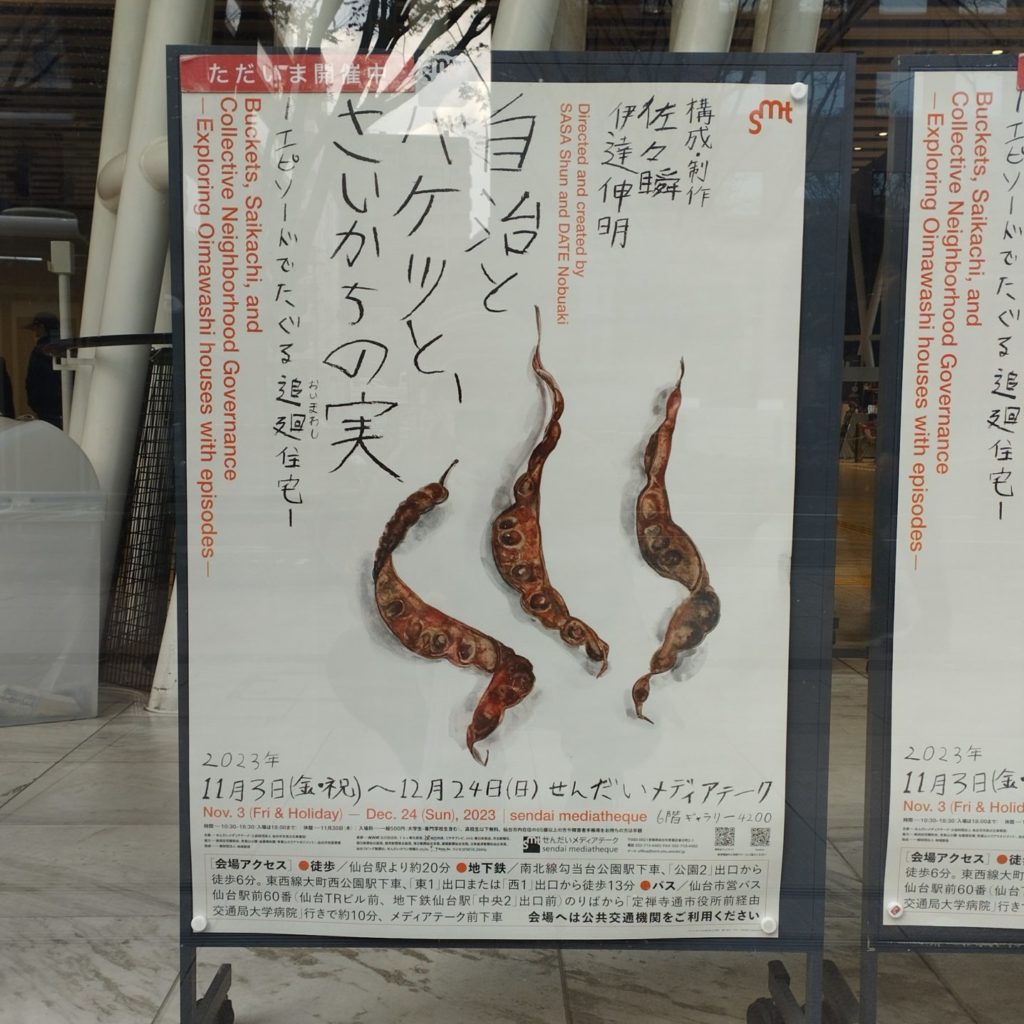 ただいま開催中
smt
構成・制作
佐々瞬
伊達伸明
Directed and created by
SASA Shun and DATE Nobuaki
自治と
バケツと、
さいかちの実
—エピソードでたぐる追廻住宅—
おいまわし
Buckets, Saikachi, and
Collective Neighborhood Governance
—Exploring Oimawashi houses with episodes—
2023年
11月3日(金・祝)～12月24日(日)せんだいメディアテーク
Nov. 3 (Fri & Holiday) — Dec. 24 (Sun), 2023 | sendai mediatheque
6階ギャラリー4200
smt せんだいメディアテーク
sendai mediatheque
[会場アクセス] ●徒歩／仙台駅より約20分 ●地下鉄／南北線勾当台公園駅下車、「公園2」出口から
徒歩6分。東西線大町西公園駅下車、「東1」出口または「西1」出口から徒歩13分 ●バス／仙台市営バス
仙台駅前60番（仙台TRビル前、地下鉄仙台駅「中央2」出口前）のりばから「定禅寺通市役所前経由
交通局大学病院」行きで約10分、メディアテーク前下車 会場へは公共交通機関をご利用ください
エピソードでたぐる追廻住宅—
Buckets, Saikachi, and
Collective Neighborhood Governance
—Exploring Oimawashi houses with episodes—
2023年
11月3日(金・
Nov. 3 (Fri & Holiday)
[会場アクセス] ●徒
徒歩6分。東西線大町
仙台駅前60番（仙台T
交通局大学病院」行